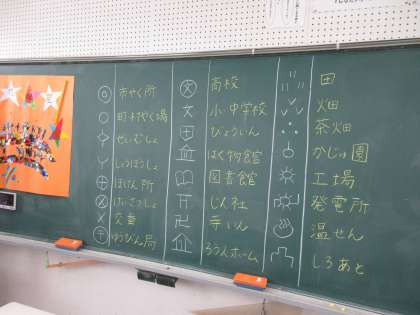 市やく所
町村やく場
ぜいむしょ
しょうぼうしょ
ほけん所
けいさつしょ
交番
ゆうびん局
文 高校
文 小・中学校
びょういん
はく物館
図書館
じん社
卍 寺いん
ろう人ホーム
田
畑
茶畑
かじゅ園
工場
発電所
温せん
しろあと